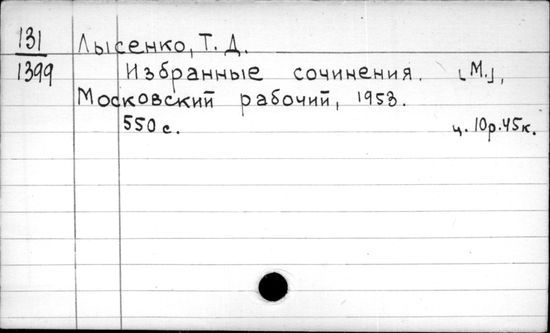 131 Лысенко, Т. Д.
1399 Избранные сочинения. [М.],
Московский рабочий, 1953.
550 с. ц. 10р.45к.